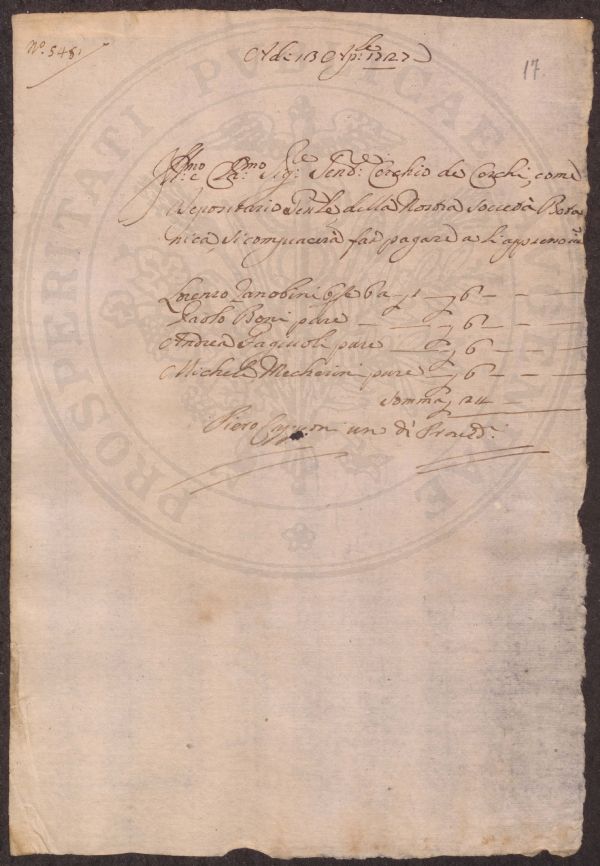 N.º 548
Adi: 13 Ap:le 1727
17
Ill:mo e Cl:mo Sig:re Send:re Cerchio de Cerchi, come
Depositario Gen:le della Nostra Società Bota
nica, si compiacerà far pagare a l'appie
Lorenzo Zanobini 6
Paolo Boni pure — — 6 — — —
Andrea Fagiuoli pure — 6 — — —
Michele Mecherini pure — 6 — — —
Somma 24
Piero un di Proved:
PROSPERITATI PUBLICAE